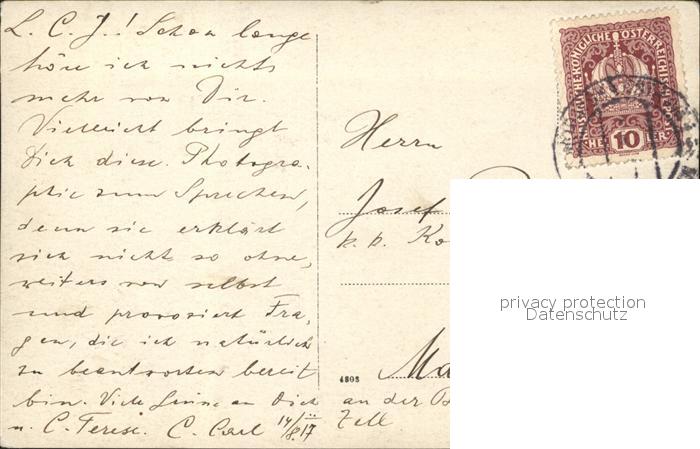 L. C. J.! Schon lange
höre ich nichts
mehr von Dir.
Vielleicht bringt
Dich diese Photogra-
phie zum Sprechen,
denn sie erklärt
sich nicht so ohne
weiters von selbst
und provoziert Fra-
gen, die ich natürlich
zu beantworten bereit
bin. Viele an Dich
u. C. Terese. C. Carl 14/8.17
KAISERLICHE KÖNIGLICHE ÖSTERREICHISCHE POST
10
Herrn
Josef
k. k. Ko
4808
Ma
an der B
Zell
privacy protection
Datenschutz